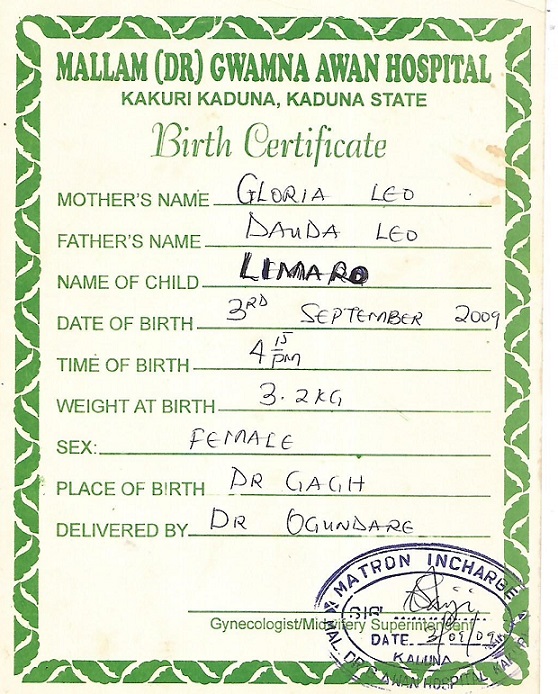 MALLAM (DR) GWAMNA AWAN HOSPITAL
KAKURI KADUNA, KADUNA STATE
Birth Certificate
MOTHER'S NAME GLORIA LEO
FATHER'S NAME DAUDA LEO
NAME OF CHILD LIMARO
DATE OF BIRTH 3RD SEPTEMBER 2009
TIME OF BIRTH 4 15 PM
WEIGHT AT BIRTH 3.2KG
SEX: FEMALE
PLACE OF BIRTH DR GAGH
DELIVERED BY DR OGUNDARE
MATRON INCHARGE
Gynecologist/Midwifery Superintendent
DATE 3/09/09
KADUNA
MAL. DR G. AWAN HOSPITAL KAKURI